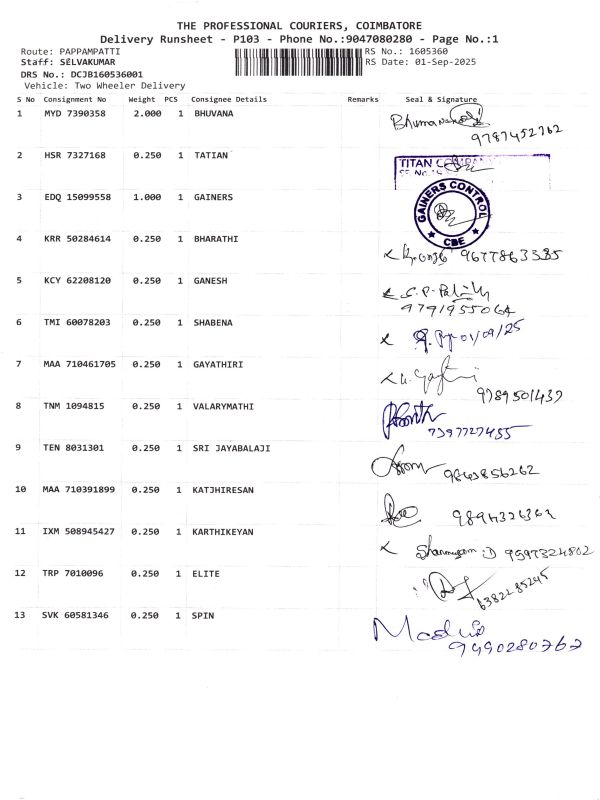 THE PROFESSIONAL COURIERS, COIMBATORE
Delivery Runsheet - P103 - Phone No.:9047080280 - Page No.:1
Route: PAPPAMPATTI
RS No.: 1605360
Staff: SELVAKUMAR
RS Date: 01-Sep-2025
DRS No.: DCJB160536001
Vehicle: Two Wheeler Delivery
S No Consignment No Weight PCS Consignee Details Remarks Seal & Signature
1 MYD 7390358 2.000 1 BHUVANA
9787452762
2 HSR 7327168 0.250 1 TATIAN
TITAN
3 EDQ 15099558 1.000 1 GAINERS
GAINERS CONTROL
CBE
4 KRR 50284614 0.250 1 BHARATHI
9677863385
5 KCY 62208120 0.250 1 GANESH
9791955064
6 TMI 60078203 0.250 1 SHABENA
01/09/25
7 MAA 710461705 0.250 1 GAYATHIRI
9789501437
8 TNM 1094815 0.250 1 VALARYMATHI
7397727455
9 TEN 8031301 0.250 1 SRI JAYABALAJI
9843856262
10 MAA 710391899 0.250 1 KATJHIRESAN
11 IXM 508945427 0.250 1 KARTHIKEYAN
9597324802
12 TRP 7010096 0.250 1 ELITE
6382285245
13 SVK 60581346 0.250 1 SPIN
9490280767